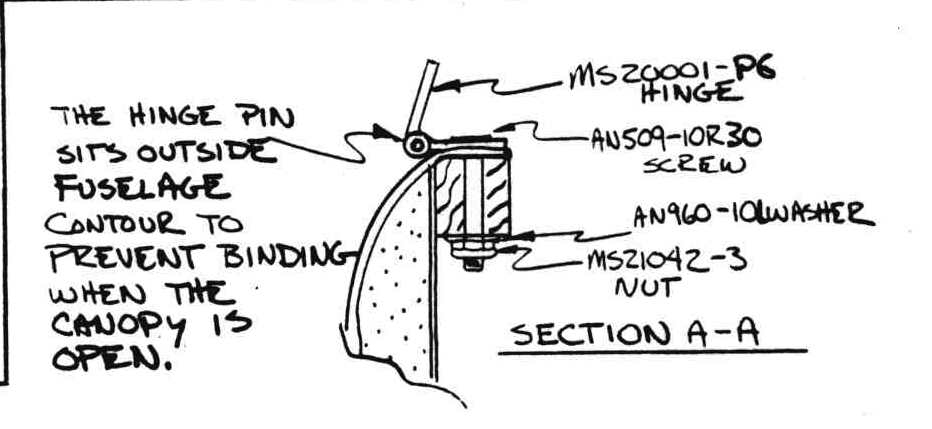 THE HINGE PIN
SITS OUTSIDE
FUSELAGE
CONTOUR TO
PREVENT BINDING
WHEN THE
CANOPY IS
OPEN.
MS20001-P6
HINGE
AN509-10R30
SCREW
AN960-10LWASHER
MS21042-3
NUT
SECTION A-A